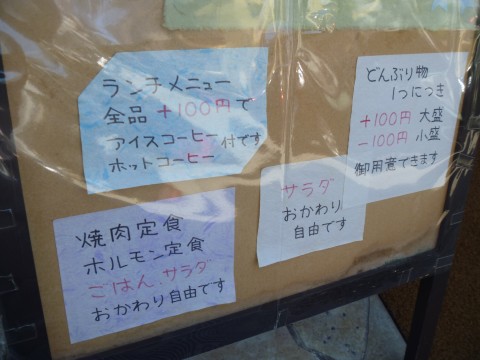 ランチメニュー
全品 +100円で
アイスコーヒー 付です
ホットコーヒー
どんぶり物
1つにつき
+100円 大盛
-100円 小盛
御用意できます
サラダ
おかわり
自由です
焼肉定食
ホルモン定食
ごはん.サラダ
おかわり自由です